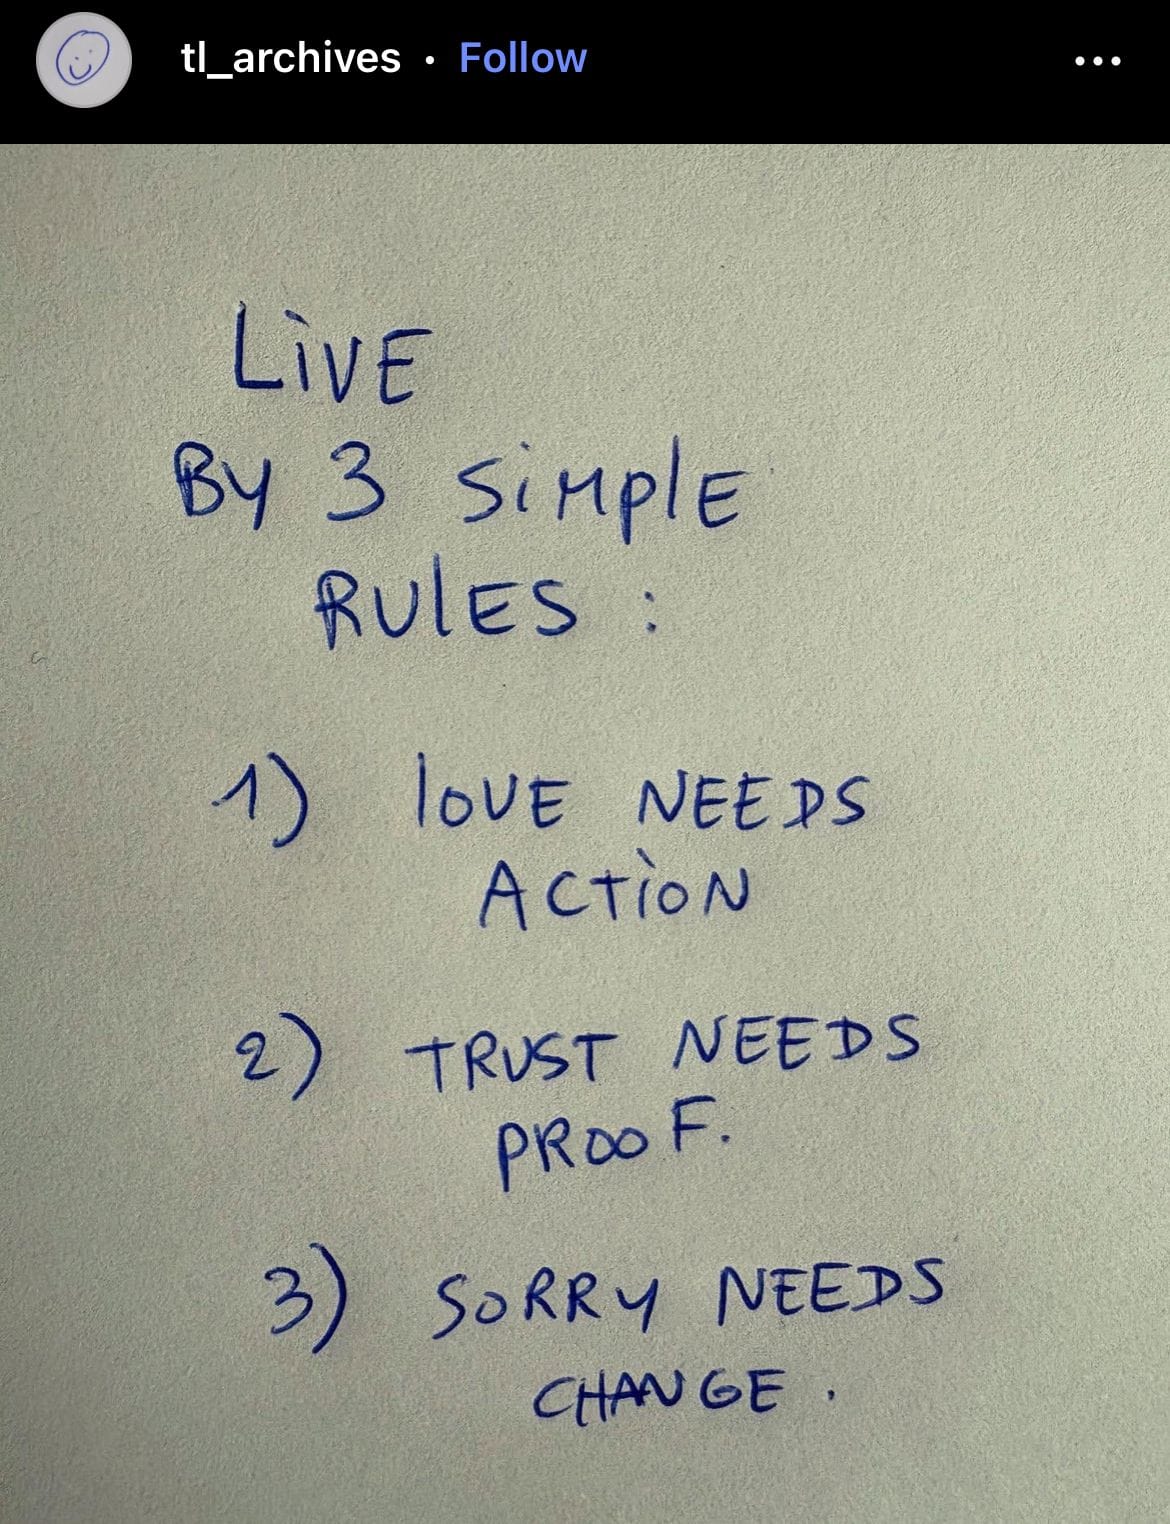 tl_archives • Follow
LiVE
By 3 SiMplE
RUlES :
1) lOVE NEEDS
ACTiON
2) TRUST NEEDS
PROOF.
3) SORRY NEEDS
CHANGE.